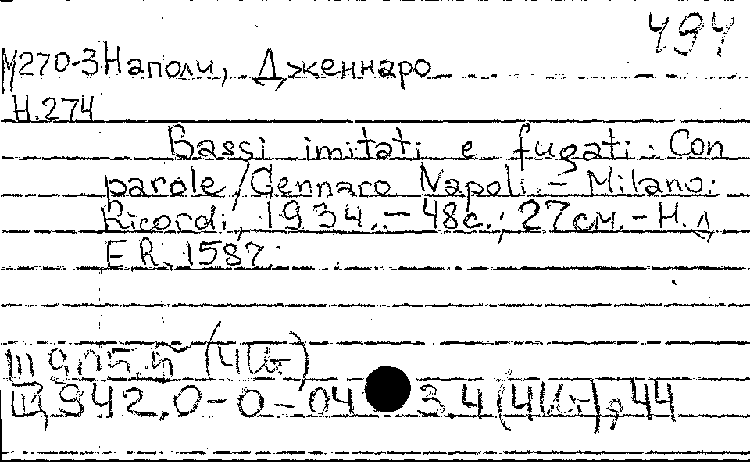 494
М270-3 Наполи, Дженнаро
Н.274
Bassi imitati e fugati: Con
parole / Gennaro Napoli. – Milano:
Ricordi, 1934. – 48с.; 27см. – Н.д.
E.R. 1587.
Щ905.5 (4Ит)
Щ942.0-0-04 3.4(4Ит),44